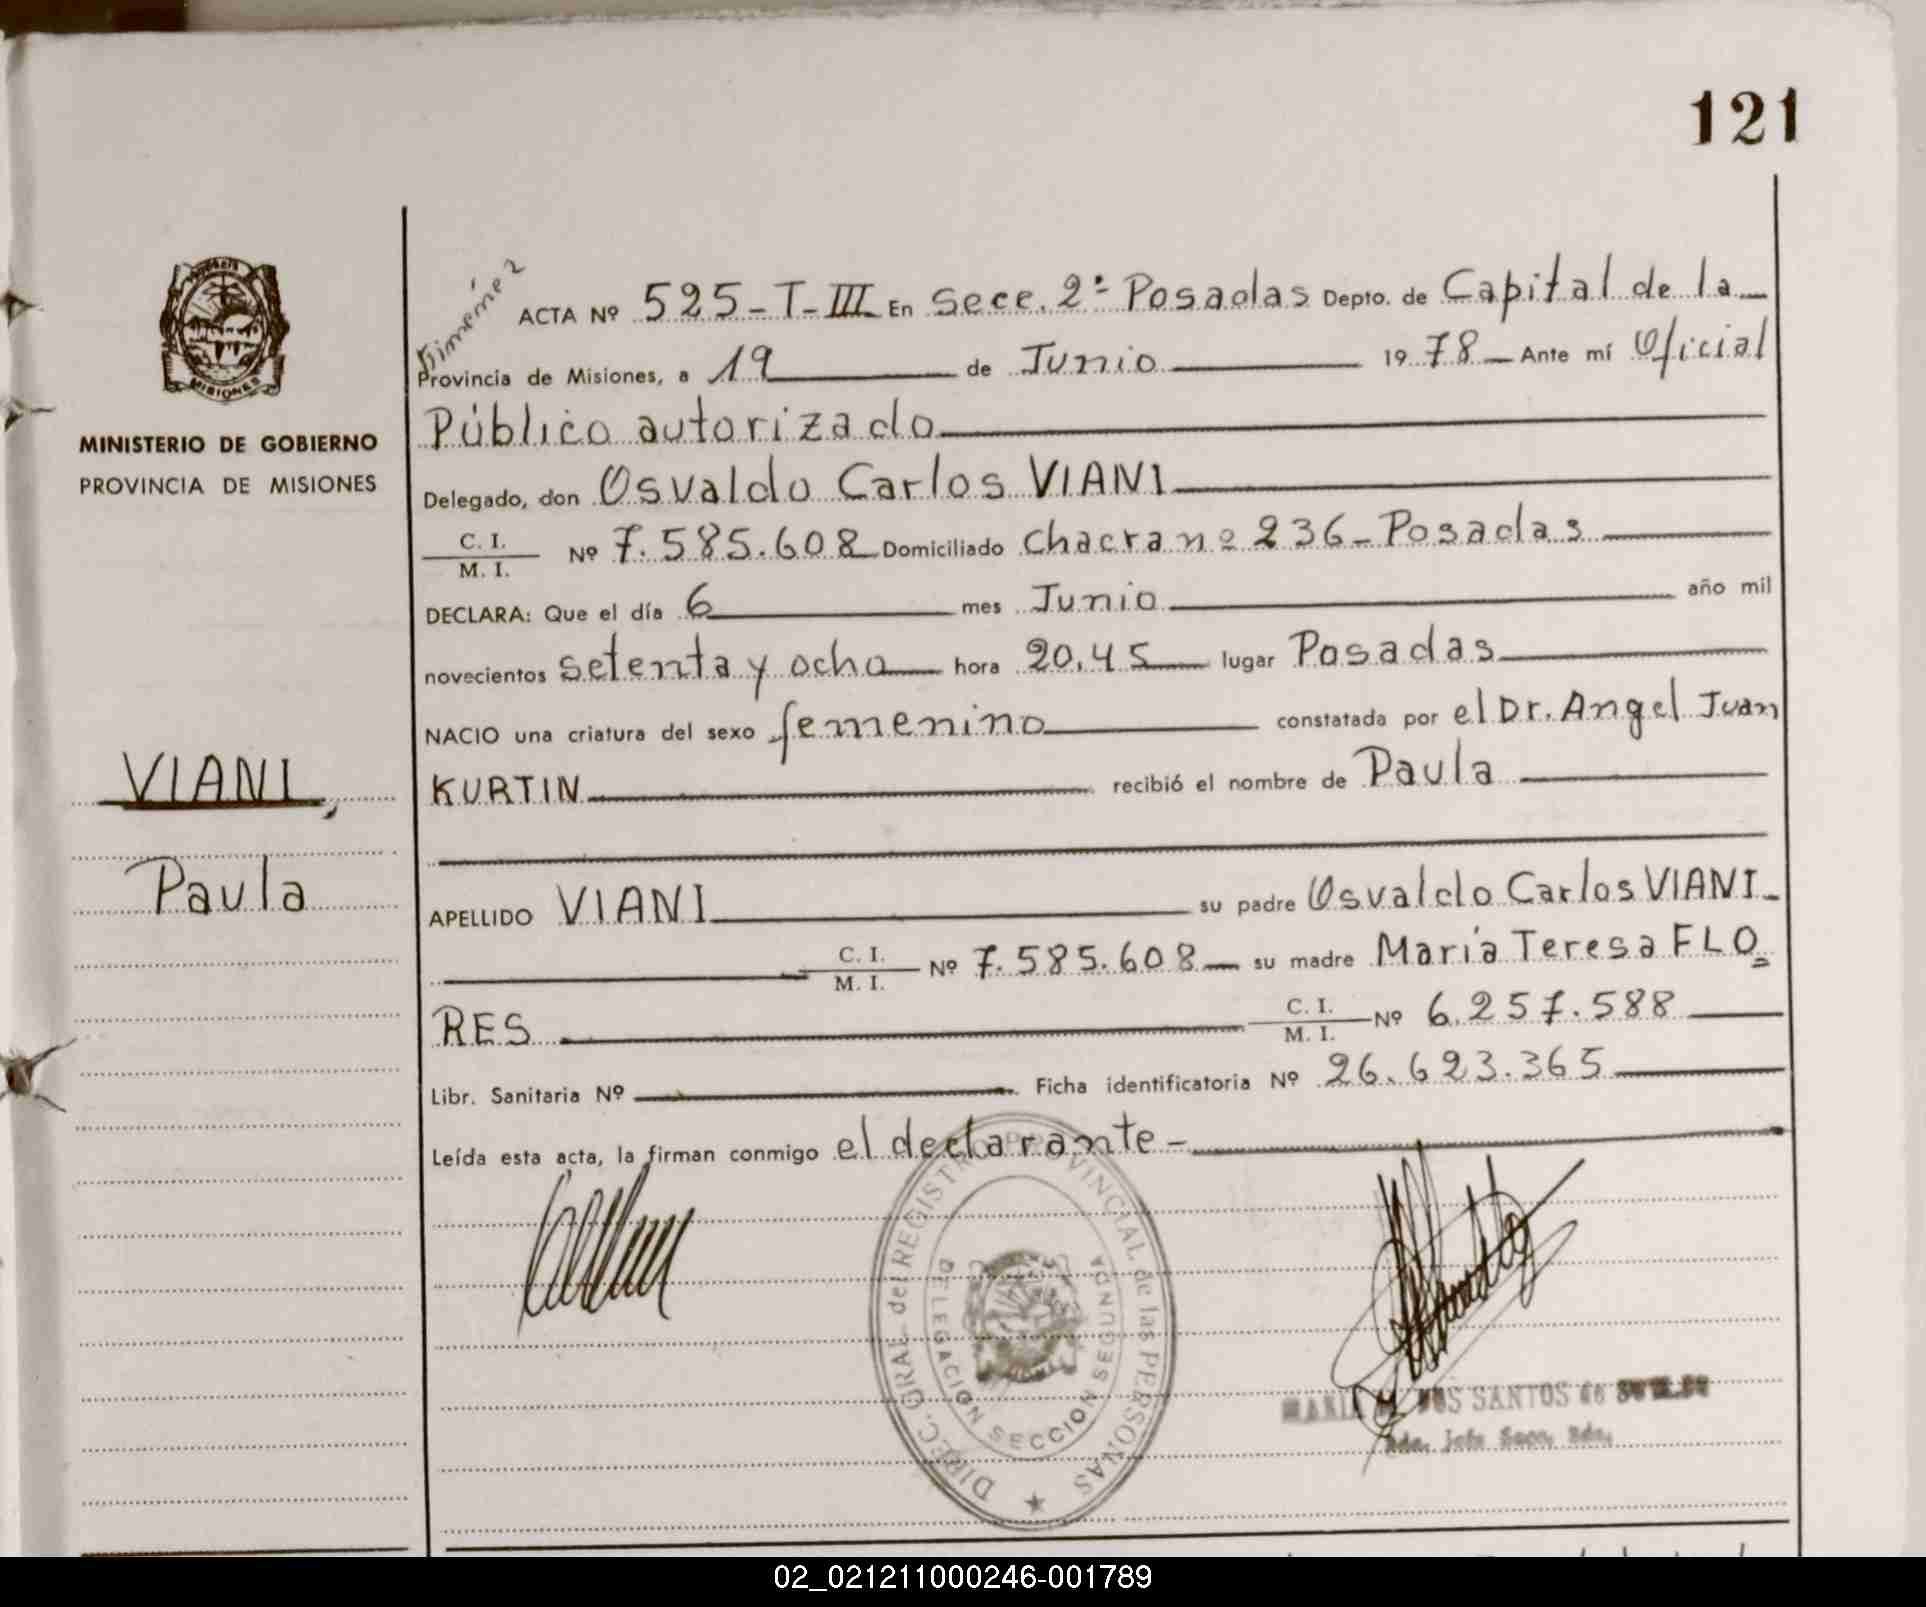 121
MISIONES
MINISTERIO DE GOBIERNO
PROVINCIA DE MISIONES
VIANI,
Paula
ACTA Nº 525-T-III En Secc. 2ª Posadas Depto. de Capital de la
Provincia de Misiones, a 19 de Junio 1978 Ante mí Oficial
Público autorizado
Delegado, don Osvaldo Carlos VIANI
C. I.
M. I. Nº 7.585.608 Domiciliado Chacra nº 236 - Posadas
DECLARA: Que el día 6 mes Junio año mil
novecientos setenta y ocho hora 20.45 lugar Posadas
NACIO una criatura del sexo femenino constatada por el Dr. Angel Juan
KURTIN recibió el nombre de Paula
APELLIDO VIANI su padre Osvaldo Carlos VIANI-
C. I.
M. I. Nº 7.585.608 su madre María Teresa FLO=
RES C. I.
M. I. Nº 6.257.588
Libr. Sanitaria Nº Ficha identificatoria Nº 26.623.365
Leída esta acta, la firman conmigo el declarante-
DIREC. GRAL. del REGISTRO PROVINCIAL de las PERSONAS
DELEGACION SECCION SEGUNDA
DOS SANTOS de
02_021211000246-001789